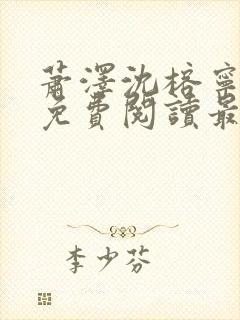 蕭澤沈榕寧
免費閱讀最
李少芬